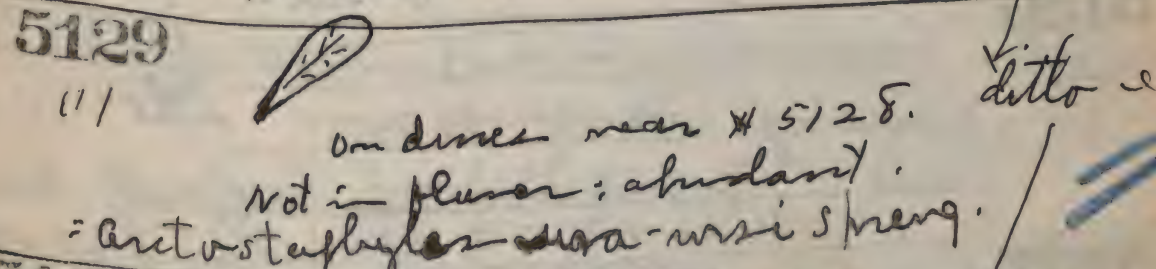 5129
(1)
ditto
on dunes near # 5128.
Not in flower; abundant.
= Arctostaphylos uva-ursi Spreng.